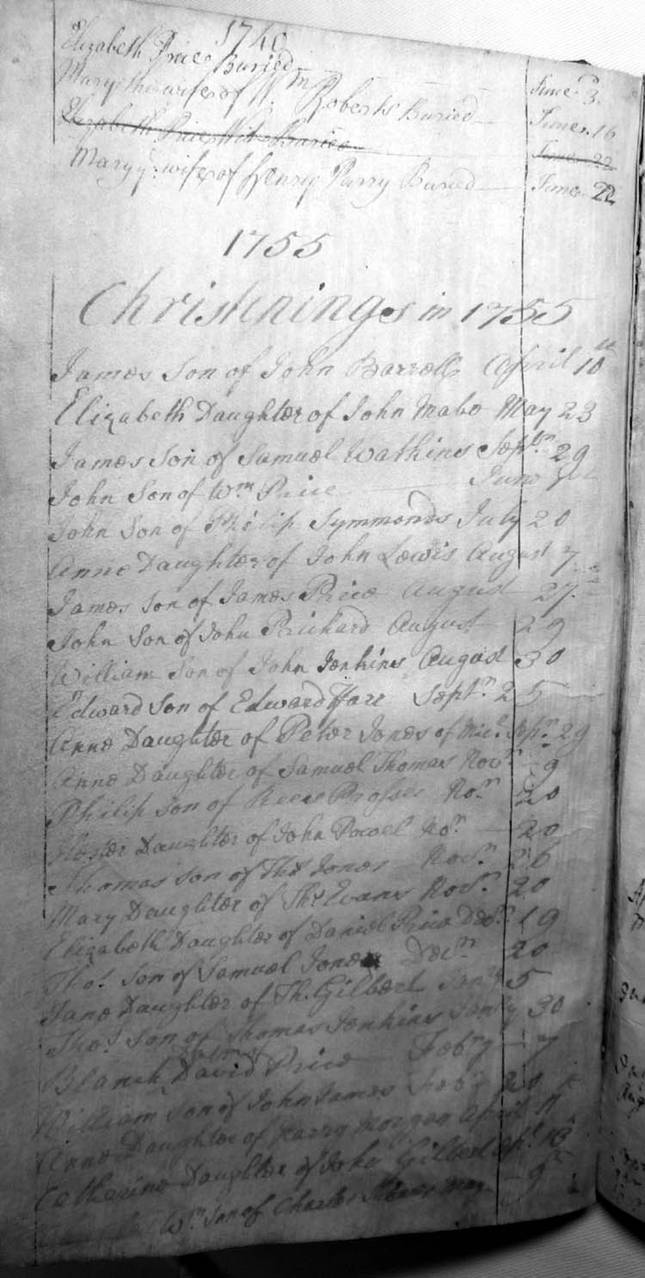 1740
Elizabeth Price Buried June 3
Mary the wife of Wm Roberts Buried June 16
Elizabeth Price Buried June 22
Mary ye wife of Henry Parry Buried June 22
1755
Christnings in 1755
James Son of John Barrell April 10th
Elizabeth Daughter of John Mabo May 23
James Son of Samuel Watkins Septbr 29
John Son of Wm Price June
John Son of Philip Symmonds July 20
Anne Daughter of John Lewis August 7
James Son of James Price August 27
John Son of John Prichard August 29
William Son of John Jenkins August 30
Edward Son of Edward Harr Septr 25
Anne Daughter of Peter Jones of Micl Septr 29
Anne Daughter of Samuel Thomas Novr 9
Philip Son of Rees Prosser Nor 20
Daughter of John Powel Nor 20
Thomas Son of Tho Jones Novr 26
Mary Daughter of Tho Evans Novr 20
Elizabeth Daughter of Daniel Price Decr 19
Thos Son of Samuel Jones Decr 20
Jane Daughter of Th. Gilbert 5
Thos Son of Thomas Jenkins 30
Blanch David Price Febry 7
William Son of John James 20
Anne Daughter of Harry Morgan April 11
Catharine Daughter of John Gilbert 18
Wm Son of Charles May 9